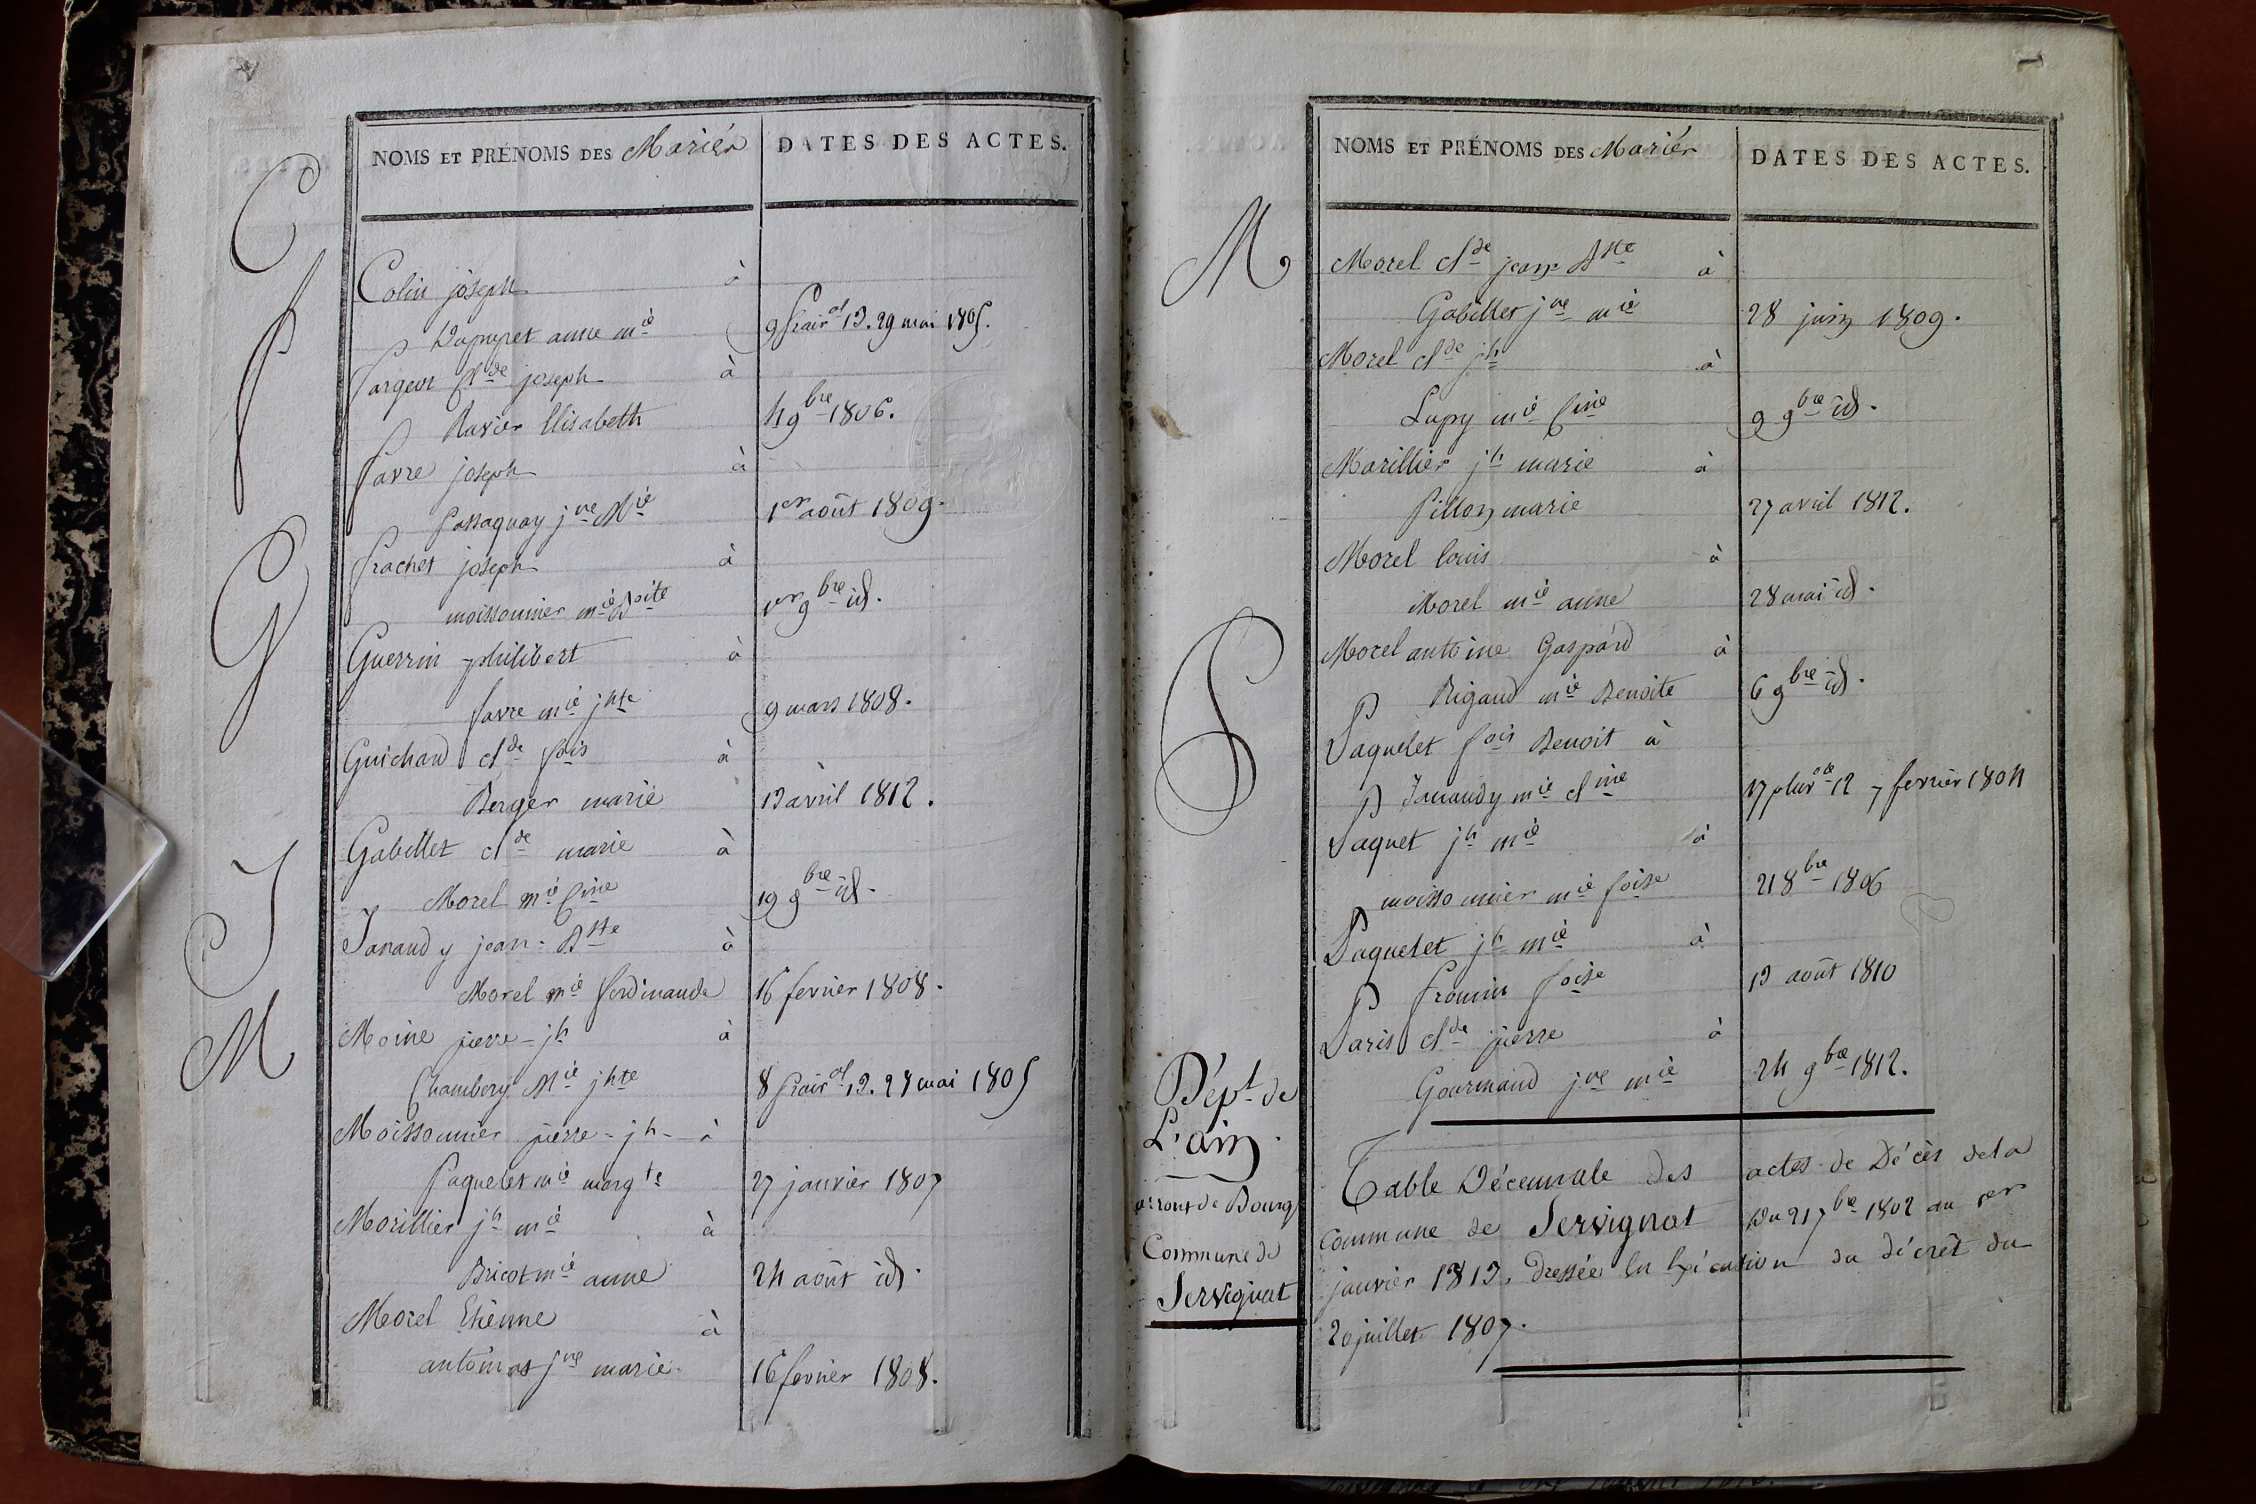 NOMS ET PRÉNOMS DES Mariés DATES DES ACTES.
C
Colin joseph à
Dupupet anne mie 9 prairal 13. 29 mai 1805.
F
Fargeot Clde joseph à
Ravier Elisabeth 4 9bre 1806.
Favre joseph à
Passaquay jne Mie 1er août 1809.
Frachet joseph à
moissonnier mie Boite 1er 9bre id.
G
Guerrin philibert à
favre mie jhte 9 mars 1808.
Guichard clde fois à
Berger marie 13 avril 1812.
Gabillet clde marie à
Morel mie fine 19 9bre id.
J
Janaudy jean-Bste à
Morel mie ferdinande 16 fevrier 1808.
M
Moine pierre-jh à
Chambery Mie jhte 8 prairal 13. 28 mai 1805
Moissonnier pierre-jh- à
Paquelet mie margte 27 janvier 1807
Morillier jh mie à
Bricot mie anne 24 août id.
Morel Etienne à
jne marie 16 fevrier 1808.
NOMS ET PRÉNOMS DES Mariés DATES DES ACTES.
M
Morel clde jean Bste à
Gabillet jne mie 28 juin 1809.
Morel clde jh à
Lupy mie fine 9 9bre id.
Marillier jh marie à
Pillon marie 27 avril 1812.
Morel louis à
Morel mie anne 28 mai id.
Morel antoine Gaspard à
Rigaud mie Benoite 6 9bre id.
P
Paquelet fois Benoit à
Janaudy mie cline 17 pluvose 12 7 fevrier 1804
Paquet jh mie à
moissonnier mie foise 21 8bre 1806
Paquelet jh mie à
fromin foise 13 août 1810
Paris clde pierre à
Gourmand jne mie 24 9bre 1812.
Dépt de
L'ain.
arront de Bourg
Commune de
Servignat
Table Décennale des actes de Décès de la
commune de Servignat Du 21 7bre 1802 au 1er
janvier 1813, dressée en Exécution du décret du
20 juillet 1807.